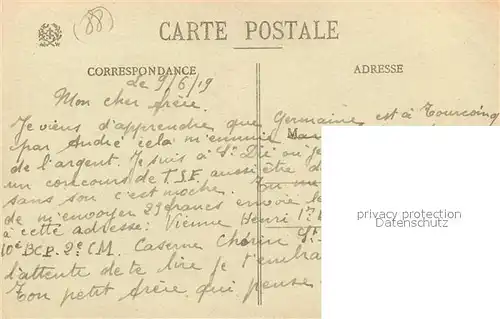 88
CARTE POSTALE
CORRESPONDANCE
ADRESSE
le 9/6/19
Mon cher frère.
Je viens d'apprendre que Germaine est à Tourcoing
par André cela m'ennuie
de l'argent. Je suis à St Dié où je
un concours de T.S.F. aussi être
sans son c'est moche.
de m'envoyer 29 francs envoie le
à cette adresse: Vienne Henri
10e BCP. 2e CM. Caserne St
l'attente de te lire je t'embra
Ton petit frère qui pense
privacy protection
Datenschutz